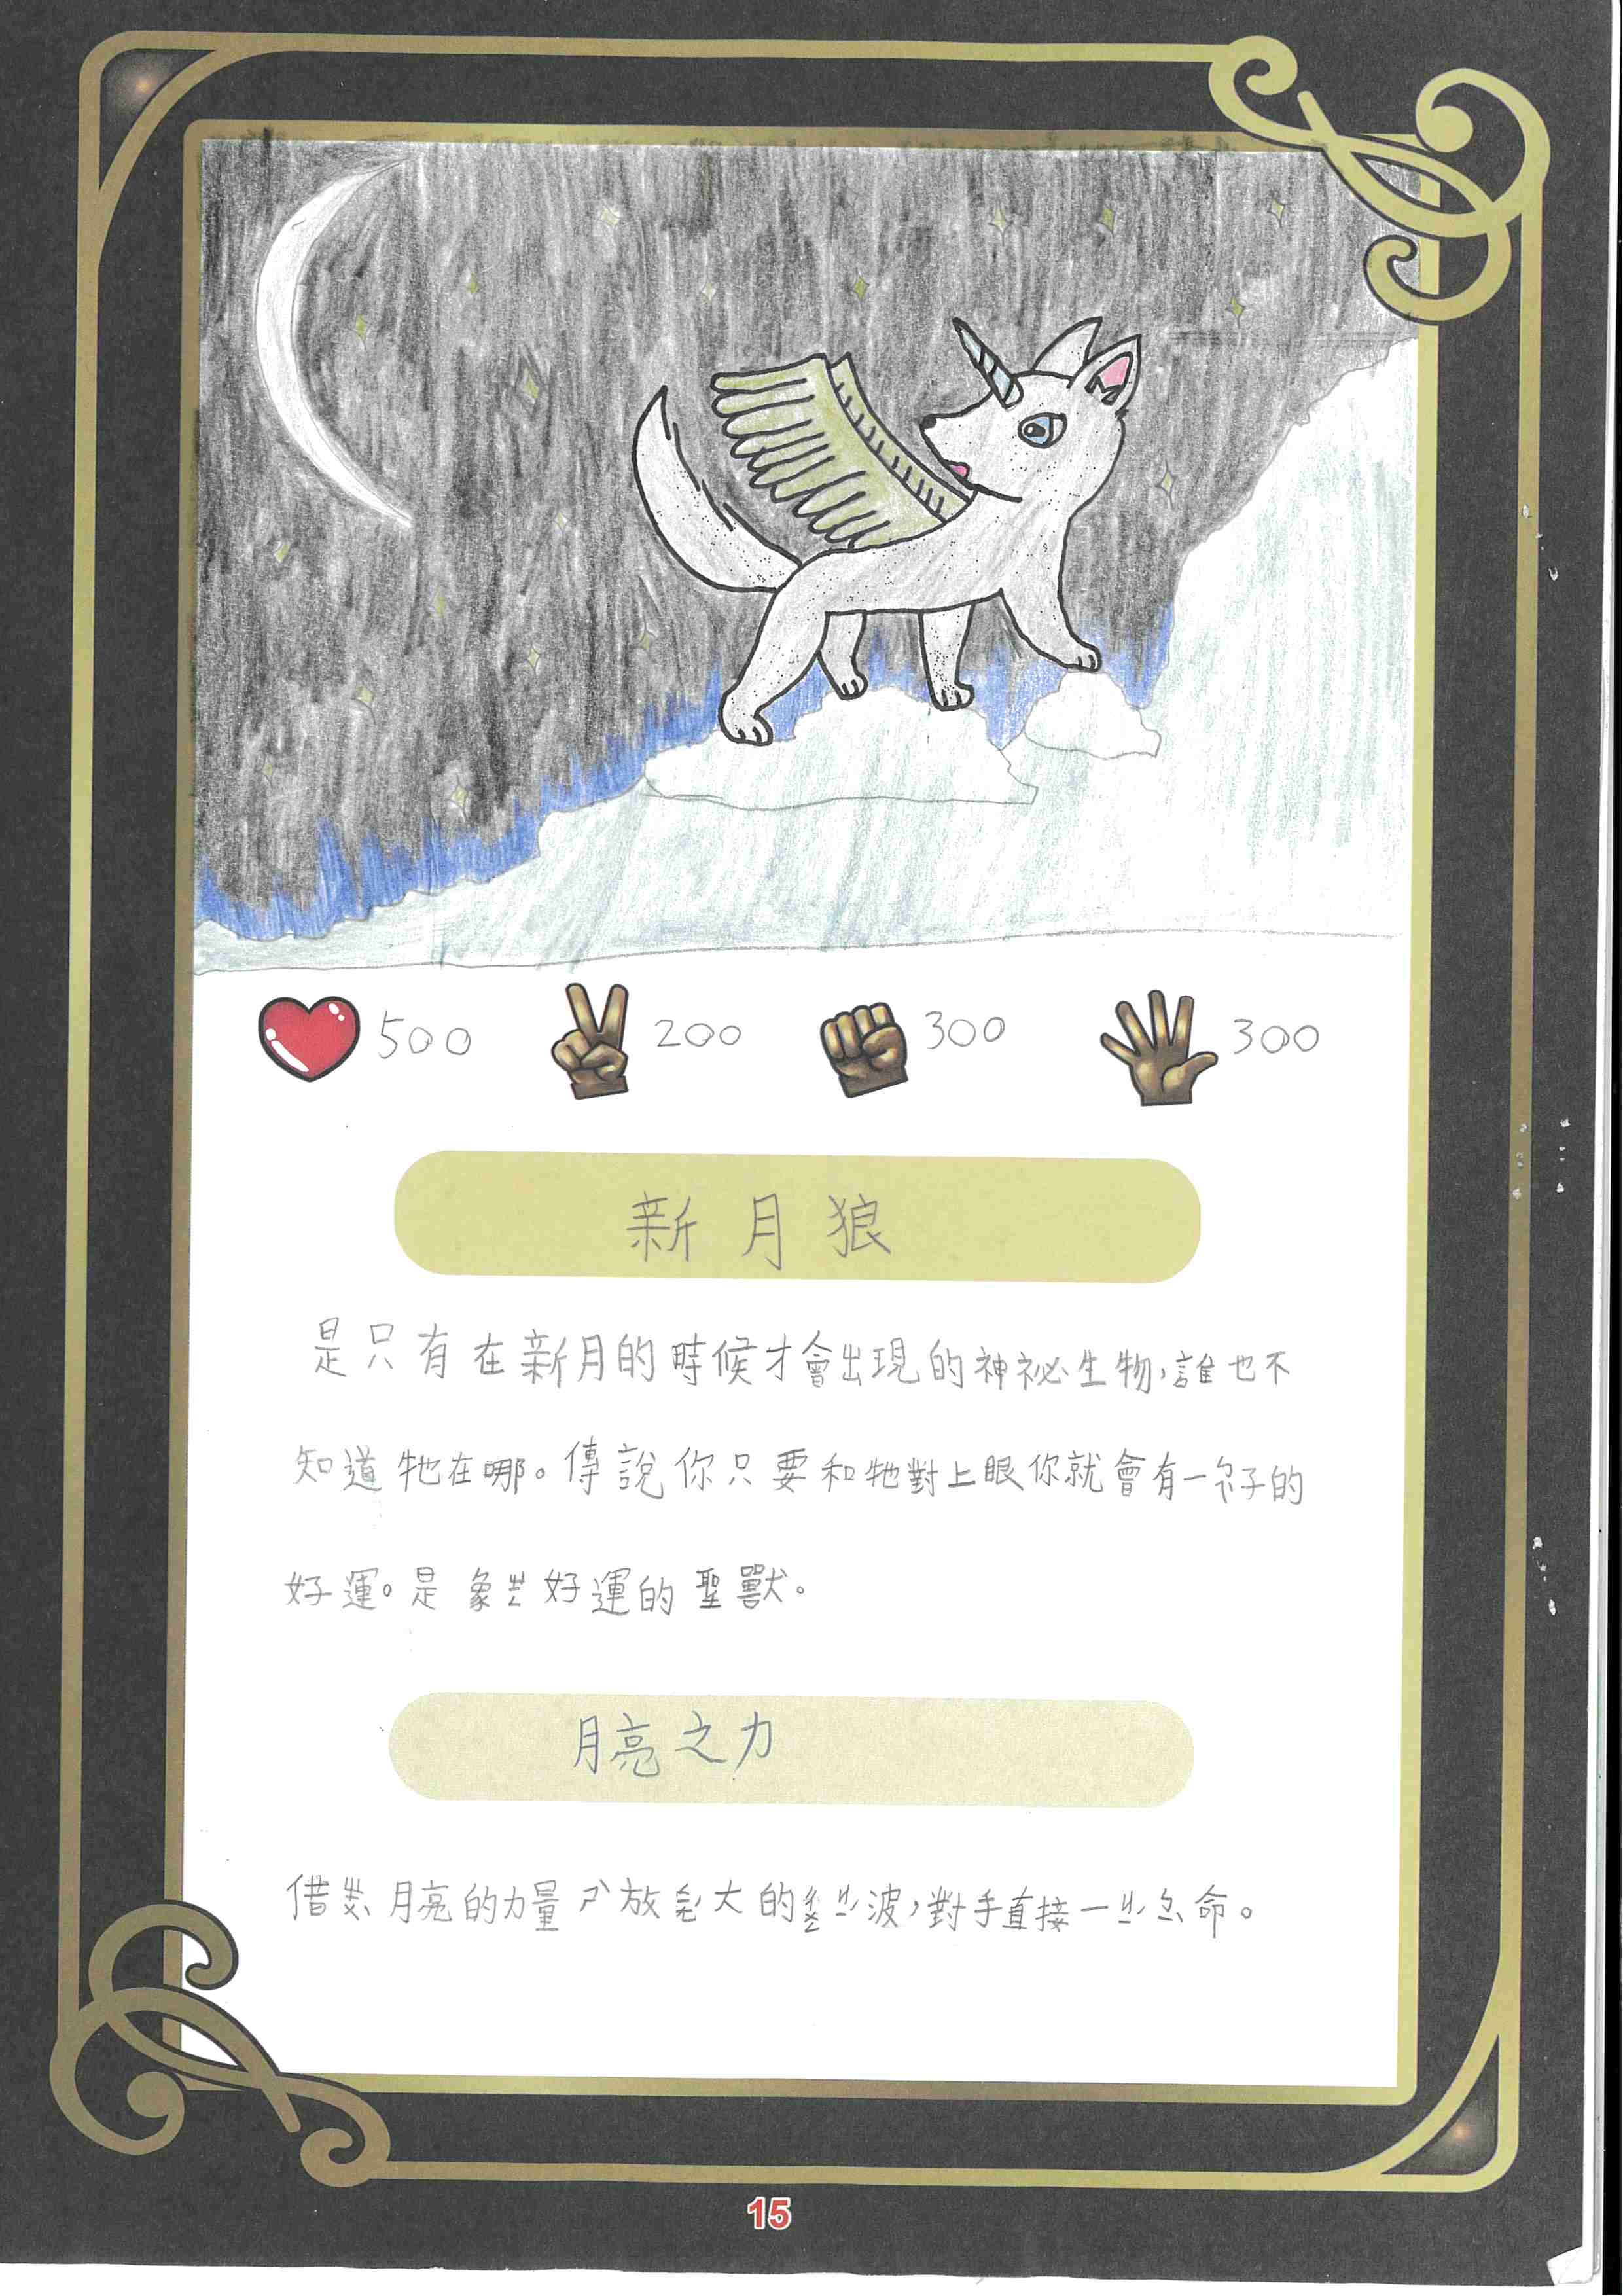 500 200 300 300
新月狼
是只有在新月的時候才會出現的神祕生物,誰也不
知道牠在哪。傳說你只要和牠對上眼你就會有一ㄋ子的
好運。是象ㄓ好運的聖獸。
月亮之力
借 月亮的力量ㄕˋ放 大的 波,對手直接一 命。
15